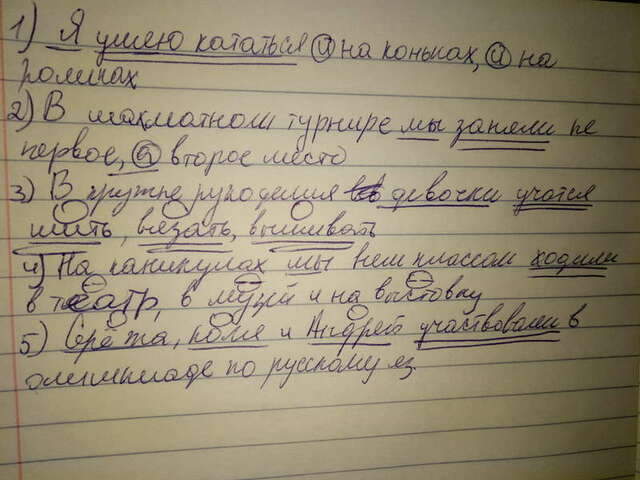 1) Я умею кататься и на коньках, и на
роликах
2) В шахматном турнире мы заняли не
первое, а второе место
3) В кружке рукоделия девочки учатся
шить, вязать, вышивать
4) На каникулах мы всем классом ходили
в театр, в музей и на выставку
5) Серёжа, Коля и Андрей участвовали в
олимпиаде по русскому яз.